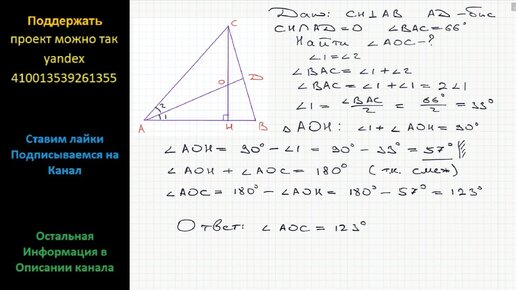 Поддержать
проект можно так
yandex
410013539261355
Ставим лайки
Подписываемся на
Канал
Остальная
Информация в
Описании канала
C
O
D
2
1
A
H
B
Дано: CH⊥AB AD - бис
CH∩AD=O ∠BAC=66°
Найти ∠AOC-?
∠1=∠2
∠BAC = ∠1+∠2
∠BAC = ∠1+∠1 = 2∠1
∠1 = ∠BAC/2 = 66°/2 = 33°
△AOH: ∠1+∠AOH = 90°
∠AOH = 90° - ∠1 = 90° - 33° = 57°
∠AOH + ∠AOC = 180° (т.к. смеж)
∠AOC = 180° - ∠AOH = 180° - 57° = 123°
Ответ: ∠AOC = 123°